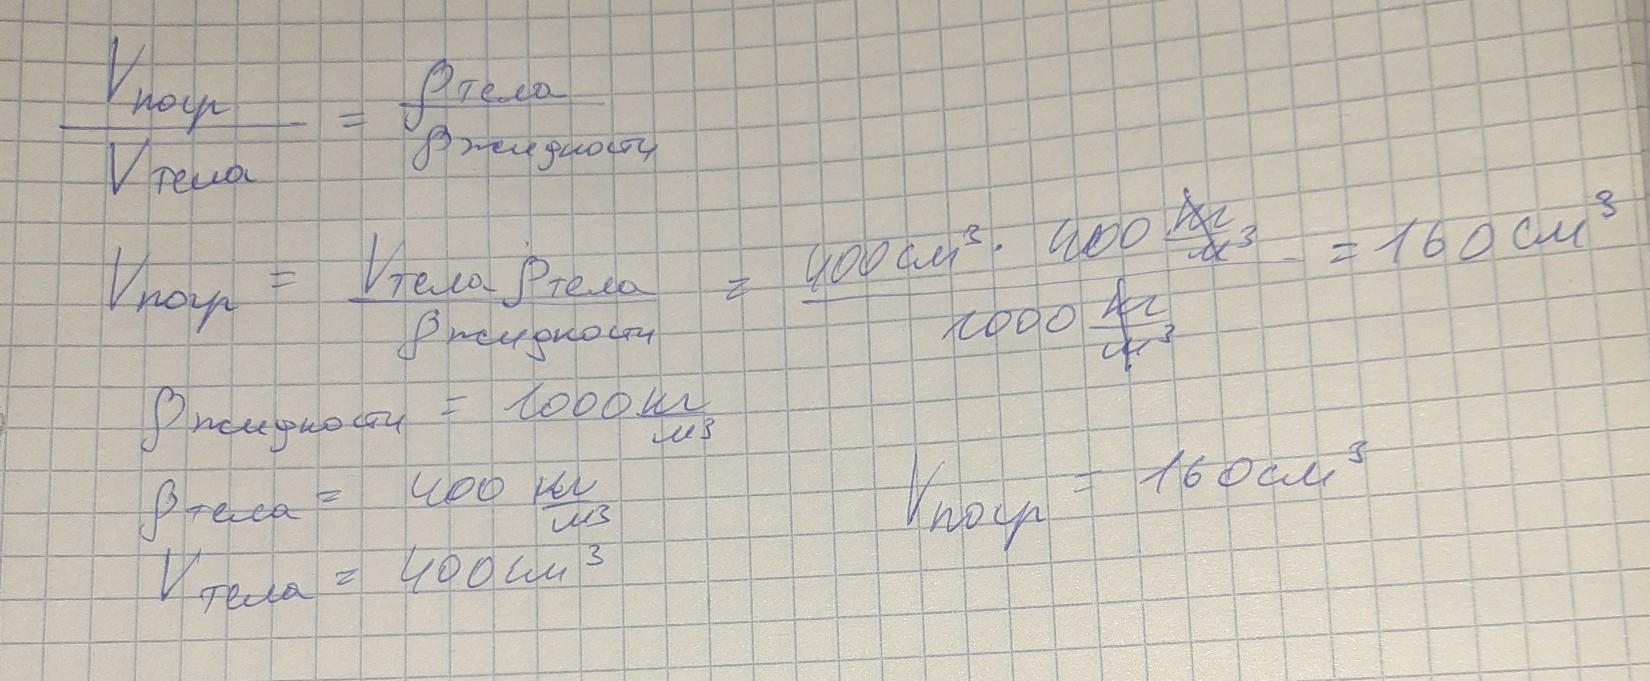 V погр / V тела = ρ тела / ρ жидкости
V погр = V тела ρ тела / ρ жидкости = 400 см³ · 400 кг/м³ / 1000 кг/м³ = 160 см³
ρ жидкости = 1000 кг/м³
ρ тела = 400 кг/м³
V погр = 160 см³
V тела = 400 см³